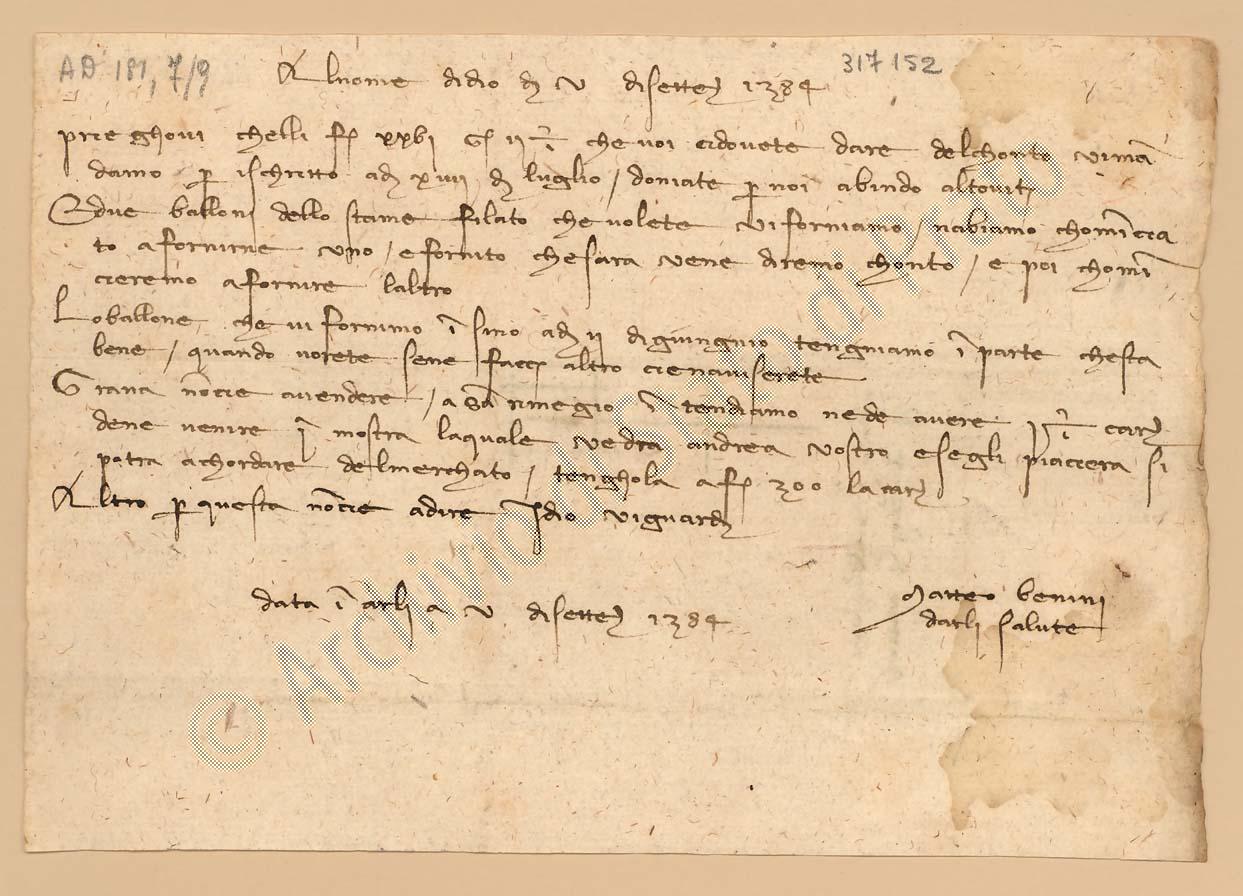 AD 181, 7/9
317152
Al nome di dio dì V di sette 1384
prieghovi chelli f. XXVI g. II che voi ci dovete dare del chonto vi man
damo p ischritto a dì XVII di luglio / doniate p noi a bindo altoviti
E due balloni dello stame filato che volete vi forniamo / nabiamo chomīcia
to a fornirne uno / e fornito che sara vene diremo chonto / e poi chomī
cieremo a fornire laltro
Lo ballone che vi fornimo ī sino a dì II di giungnio tengniamo ī parte che sta
bene / quando vorete sene faccia altro cienaviserete
Grana nōcie a vendere / a Sā rimegio ī tendiamo ne de avere car
dene venire ī mostra laquale vedra andrea vostro e segli piaciera si
potra achordare del merchato / tenghola a f. 300 la car
Altro p questa nōcie a dire Idio vi guardi
data ī arli a V di sette 1384
Matteo benini
darli salute
© Archivio di Stato di Prato